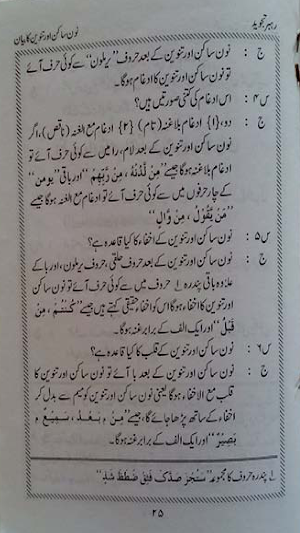 رہبر تجوید نون ساکن اور تنوین کا بیان
ج : نون ساکن اور تنوین کے بعد حروف "یرملون" سے کوئی حرف آئے
تو نون ساکن اور تنوین کا ادغام ہوگا۔
س۴ : اس ادغام کی کتنی صورتیں ہیں؟
ج : دو، {۱} ادغام بلاغنہ (تام) {۲} ادغام مع الغنہ (ناقص)، اگر
نون ساکن اور تنوین کے بعد لام، را میں سے کوئی حرف آئے تو
ادغام بلاغنہ ہوگا جیسے "مِنْ لَّدُنْهُ ، مِنْ رَّبِّهِمْ" اور باقی "یومن"
کے چار حرفوں میں سے کوئی حرف آئے تو ادغام مع الغنہ ہوگا جیسے
"مَنْ يَّقُوْلُ ، مِنْ وَّالٍ"
س۵ : نون ساکن اور تنوین کے اخفاء کا کیا قاعدہ ہے؟
ج : نون ساکن اور تنوین کے بعد حروف حلقی، حروف یرملون، اور با کے
علاوہ باقی پندرہ ۱؎ حروف میں سے کوئی حرف آئے تو نون ساکن
اور تنوین کا اخفاء ہوگا اس کو اخفاء حقیقی کہتے ہیں جیسے "كُنْتُمْ ، مِنْ
قَبْلُ" اور ایک الف کے برابر غنہ ہوگا۔
س۶ : نون ساکن اور تنوین کے قلب کا کیا قاعدہ ہے؟
ج : نون ساکن اور تنوین کے بعد با آئے تو نون ساکن اور تنوین کا
قلب مع الاخفاء ہوگا یعنی نون ساکن اور تنوین کو میم سے بدل کر
اخفاء کے ساتھ پڑھا جائے گا، جیسے "مِنْ بَعْدُ ، سَمِيْعٌ
بَصِيْرٌ" اور ایک الف کے برابر غنہ ہوگا۔
۱؎ پندرہ حروف کا مجموعہ "سَتُجَزُ صدّك فَثِقْ ضَطَظَ شَذِ"
۲۵